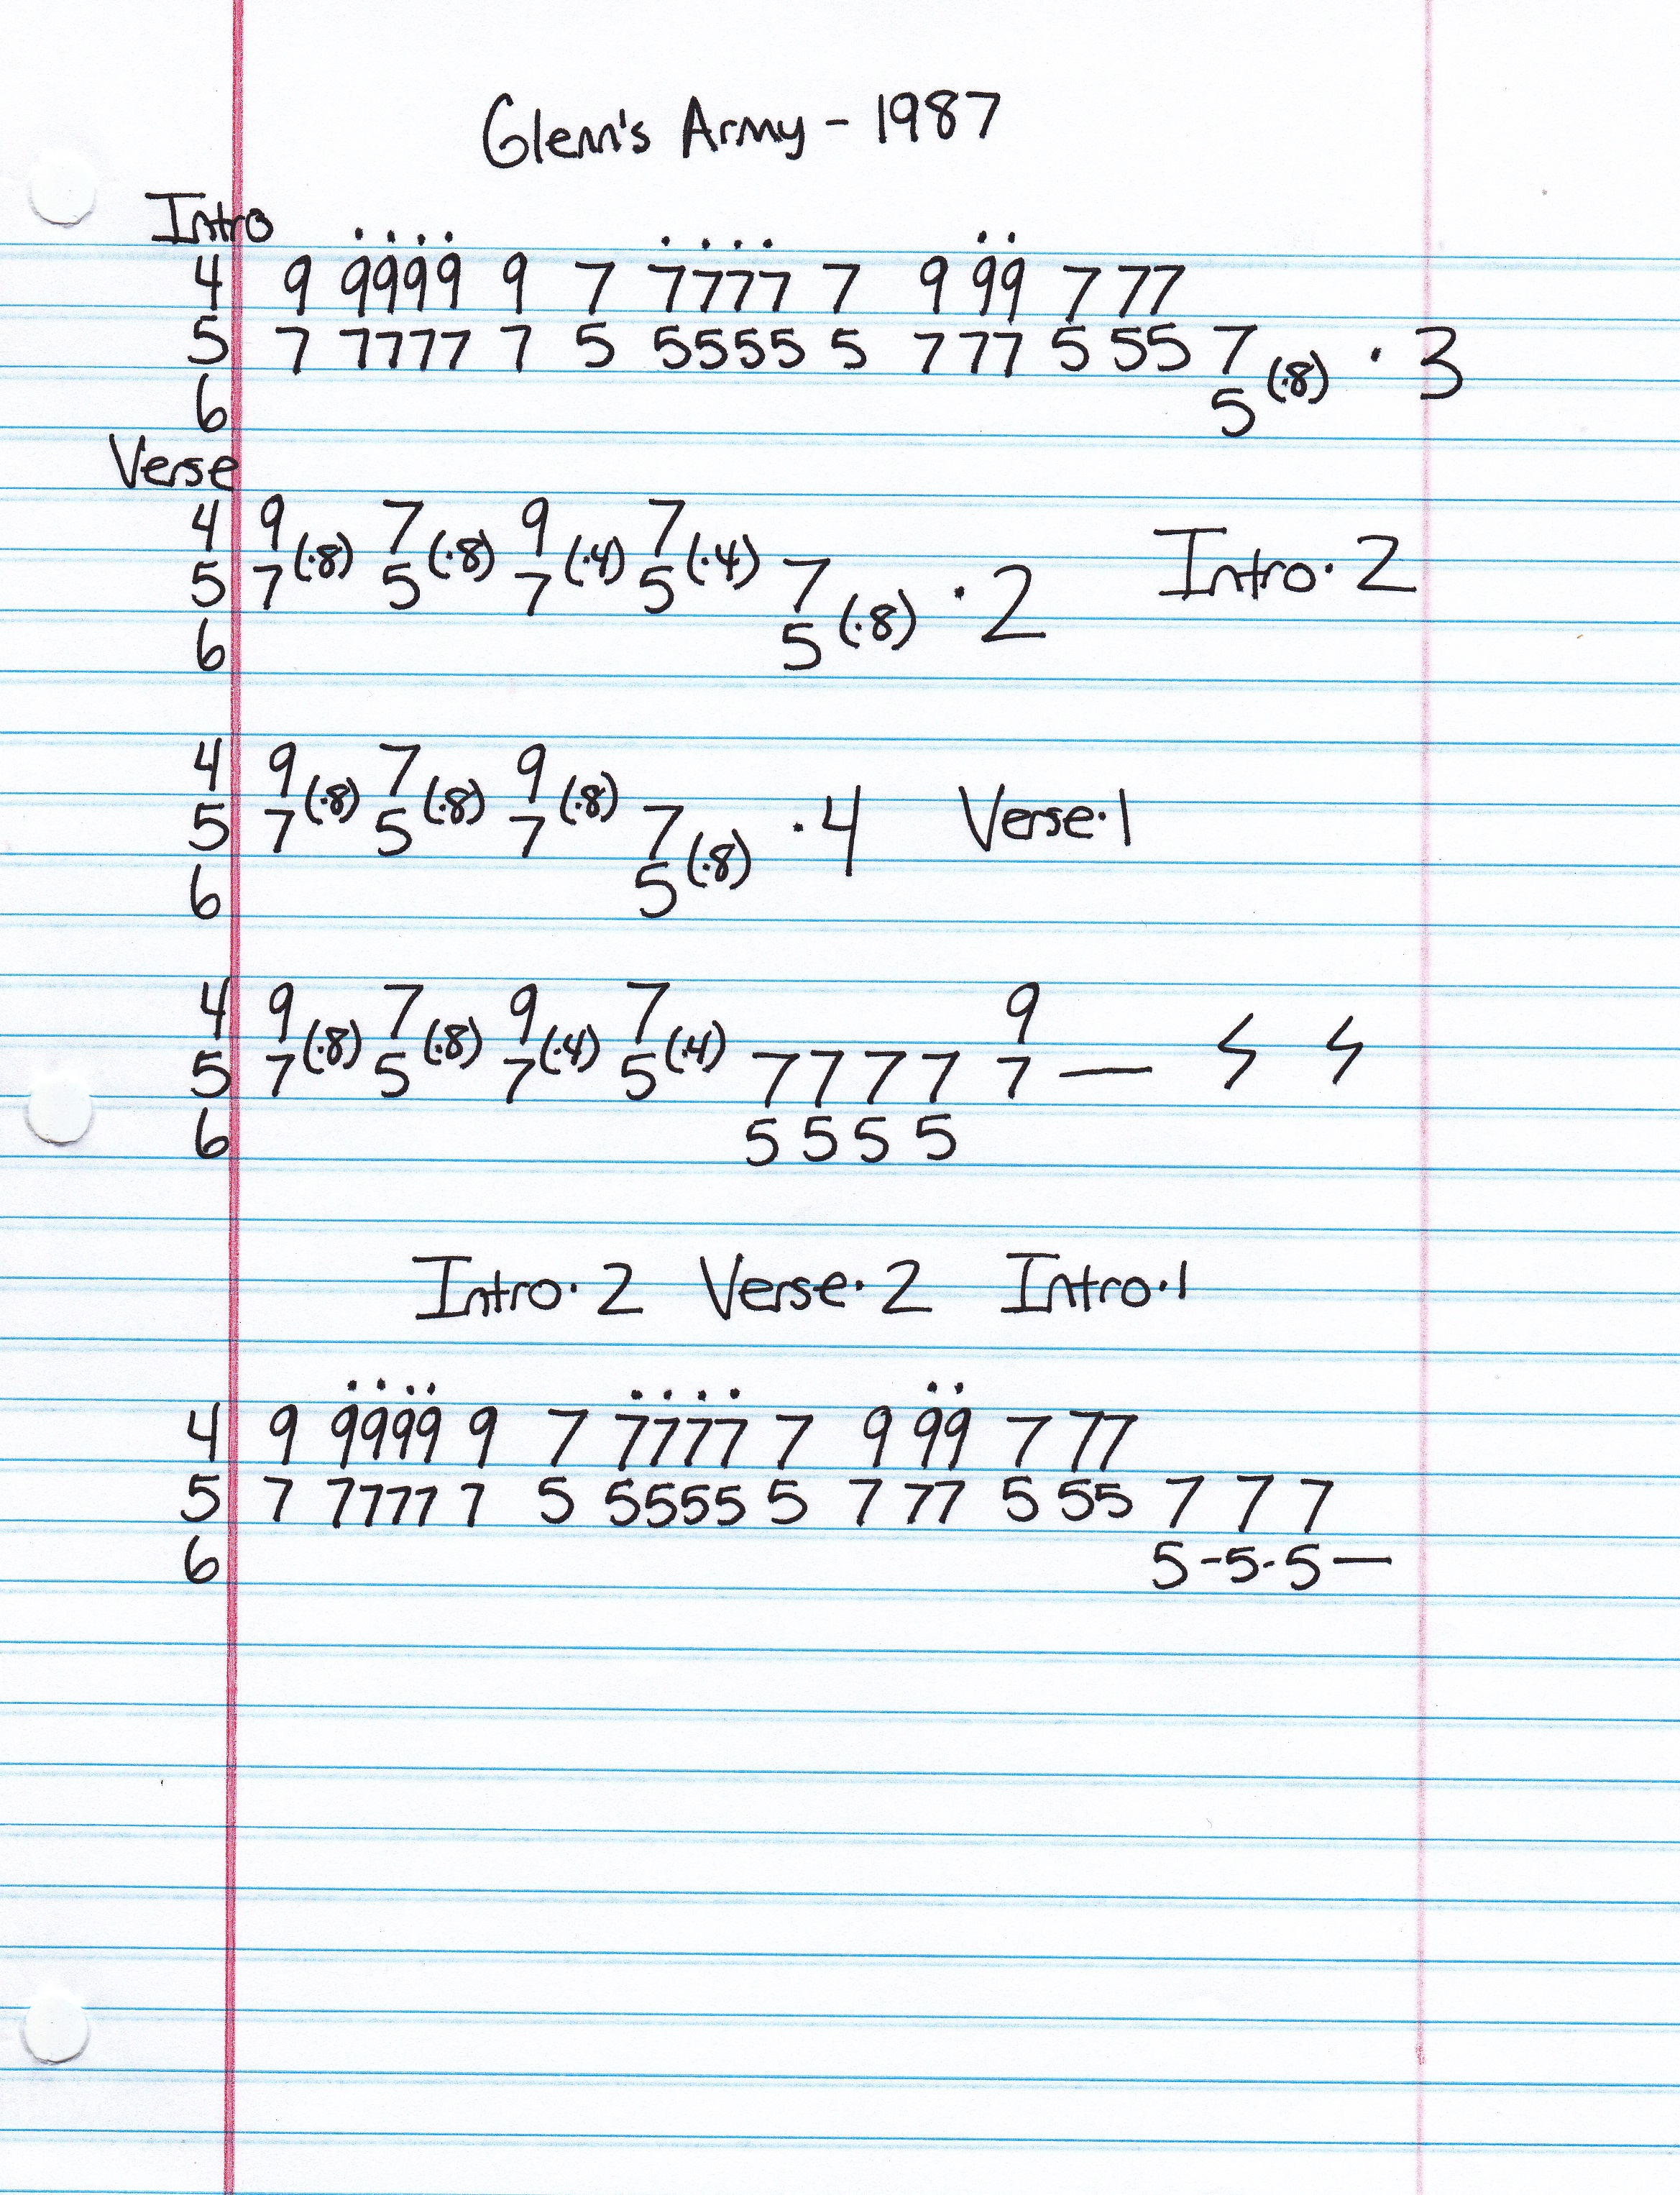 Glenn's Army - 1987
Intro
. . . . . . . . . .
4 9 9999 9 7 7777 7 9 99 7 77
5 7 7777 7 5 5555 5 7 77 5 55 7 (·8) · 3
6 5
Verse
4 9 (·8) 7 (·8) 9 (·4) 7 (·4) Intro · 2
5 7 5 7 5 7 (·8) · 2
6 5
4 9 (·8) 7 (·8) 9 (·8)
5 7 5 7 7 (·8) · 4 Verse · 1
6 5
4 9 (·8) 7 (·8) 9 (·4) 7 (·4) 9
5 7 5 7 5 7 7 7 7 7 —
6 5 5 5 5
Intro · 2 Verse · 2 Intro · 1
. . . . . . . . . .
4 9 9999 9 7 7777 7 9 99 7 77
5 7 7777 7 5 5555 5 7 77 5 55 7 7 7
6 5 - 5 - 5 —